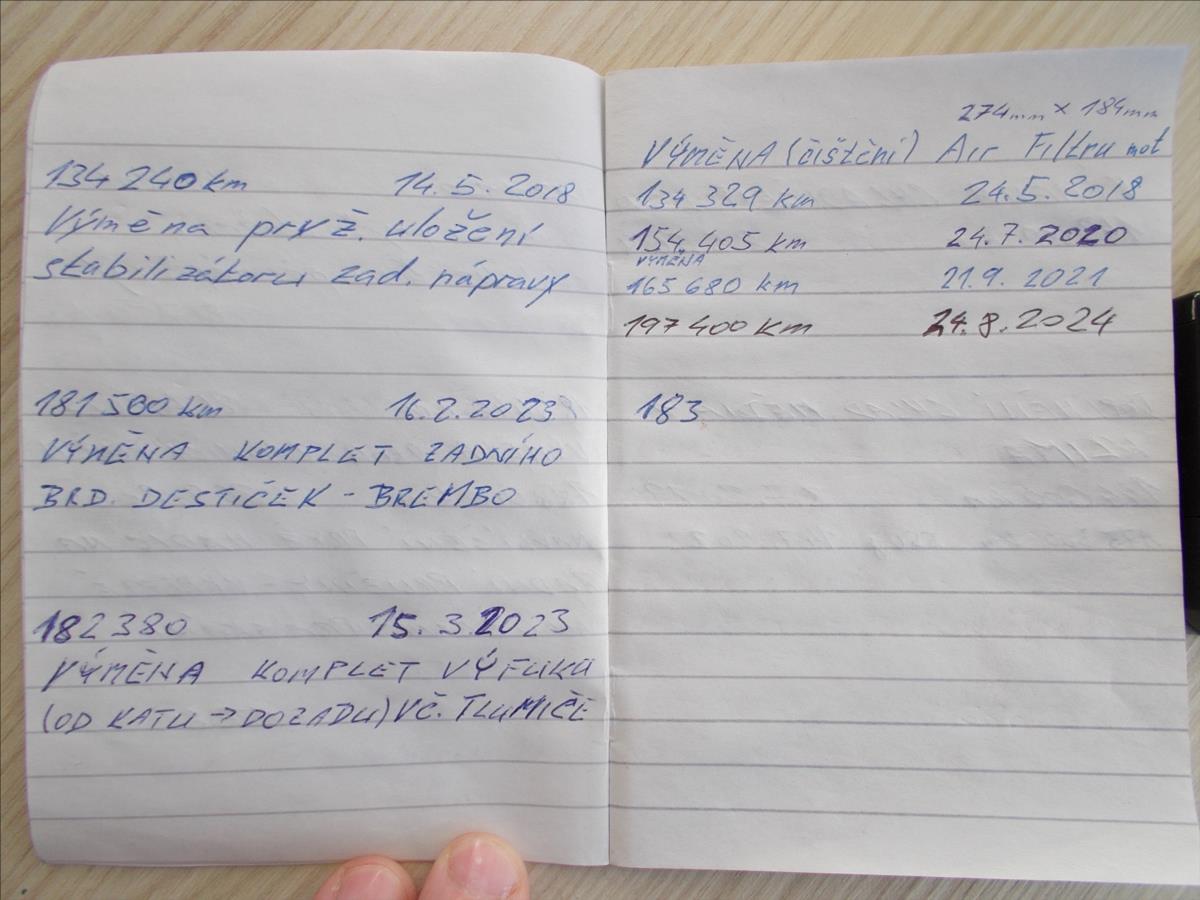 134 240 km 14.5.2018
Výměna pryž. uložení
stabilizátoru zad. nápravy
181 500 km 16.2.2023
VÝMĚNA KOMPLET ZADNÍHO
BRD. DESTIČEK - BREMBO
182 380 15.3.2023
VÝMĚNA KOMPLET VÝFUKU
(OD KATU → DOZADU) VČ. TLUMIČE
274mm × 184mm
VÝMĚNA (čištění) Air Filtru mot
134 329 km 24.5.2018
154.405 km 24.7.2020
VÝMĚNA
165 680 km 21.9.2021
197 400 km 24.8.2024
183